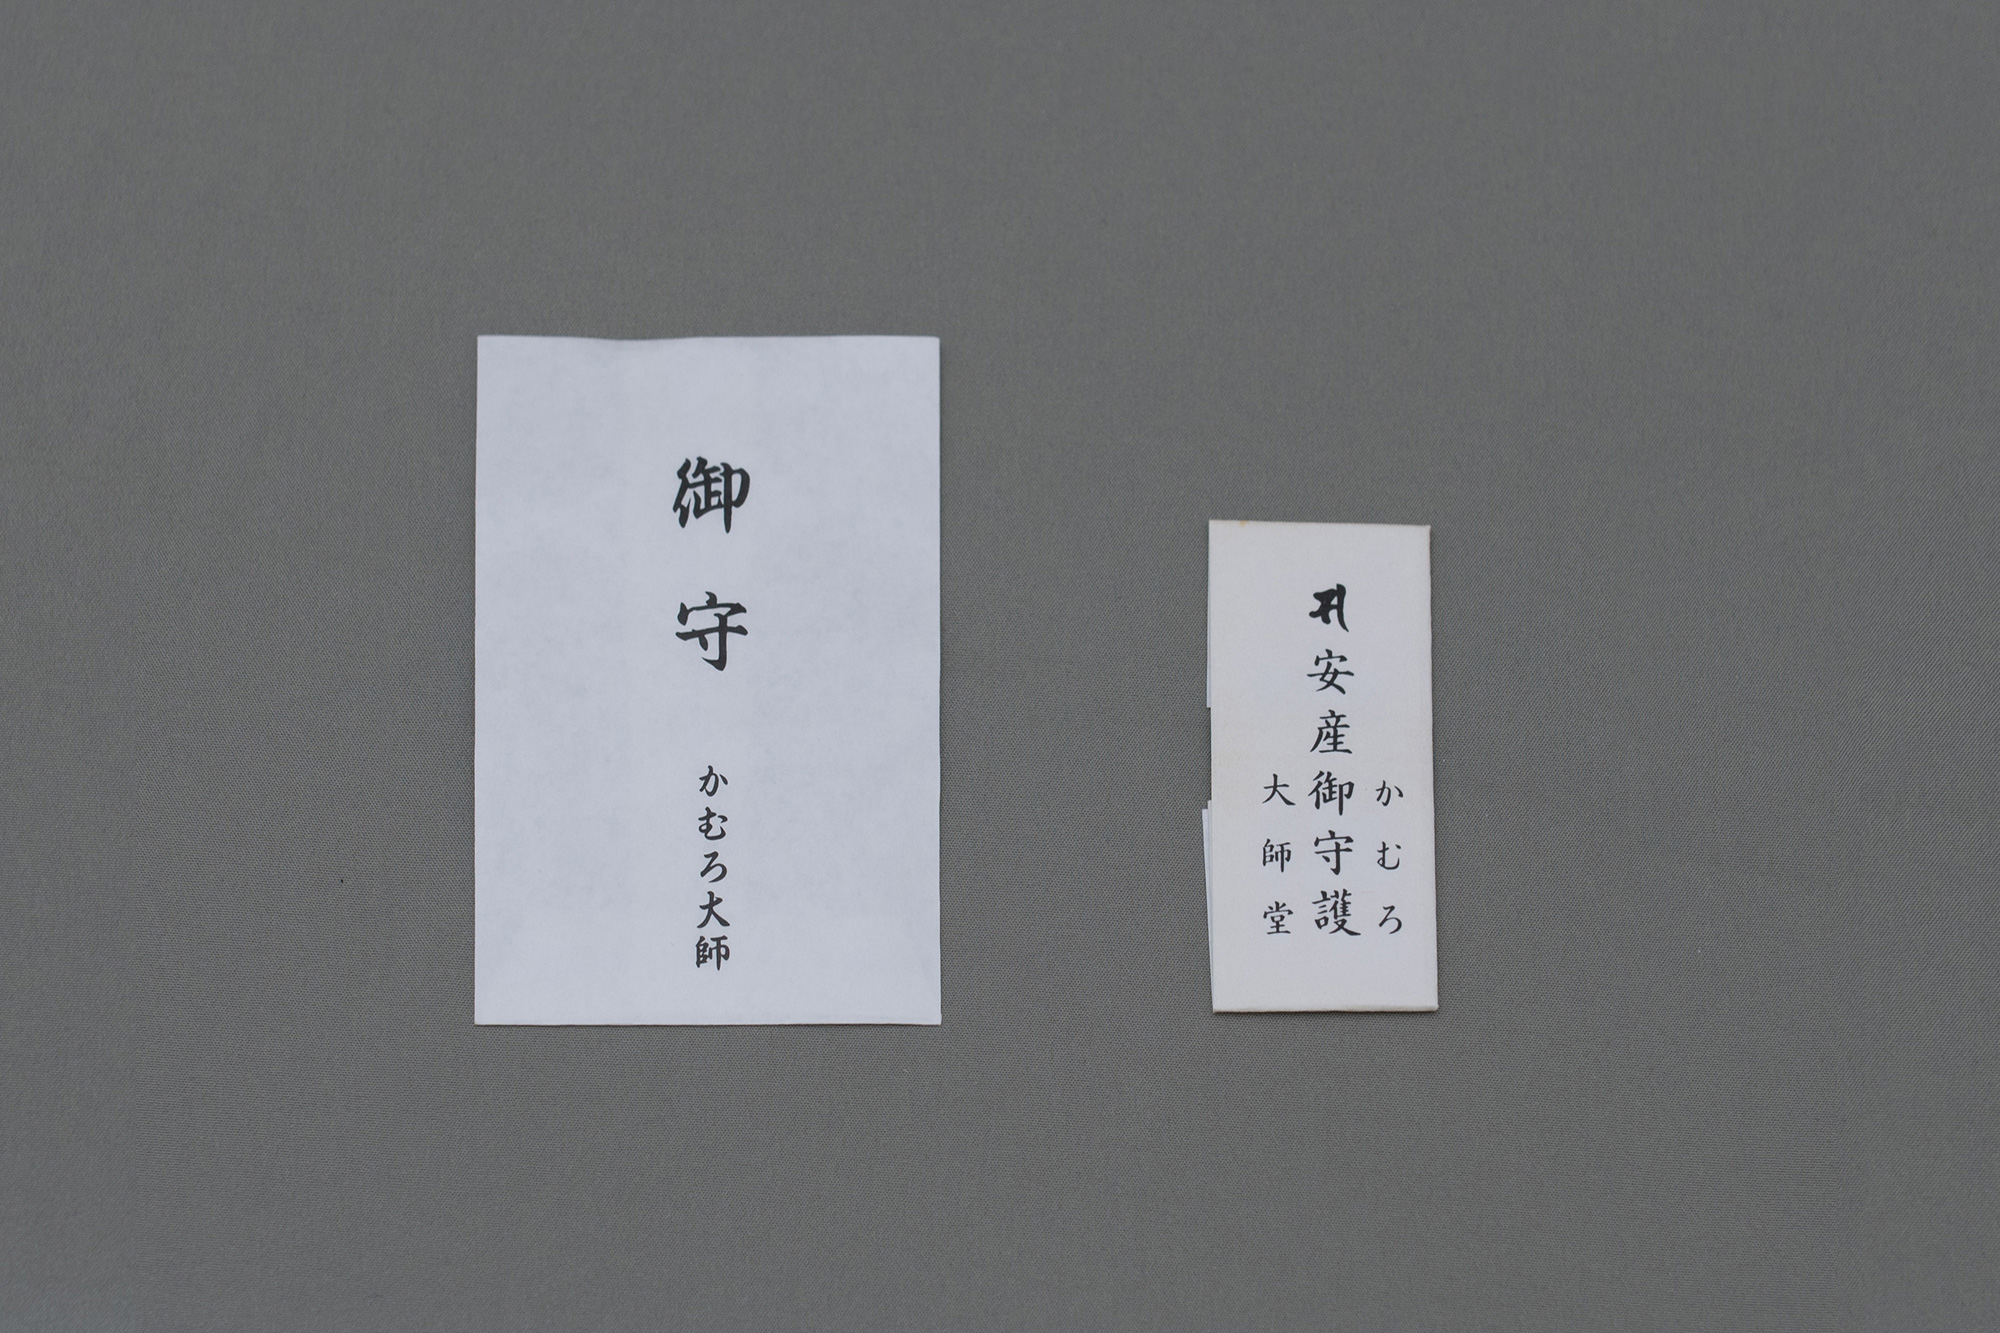 御守
かむろ大師
かむろ
安産御守護
大師堂